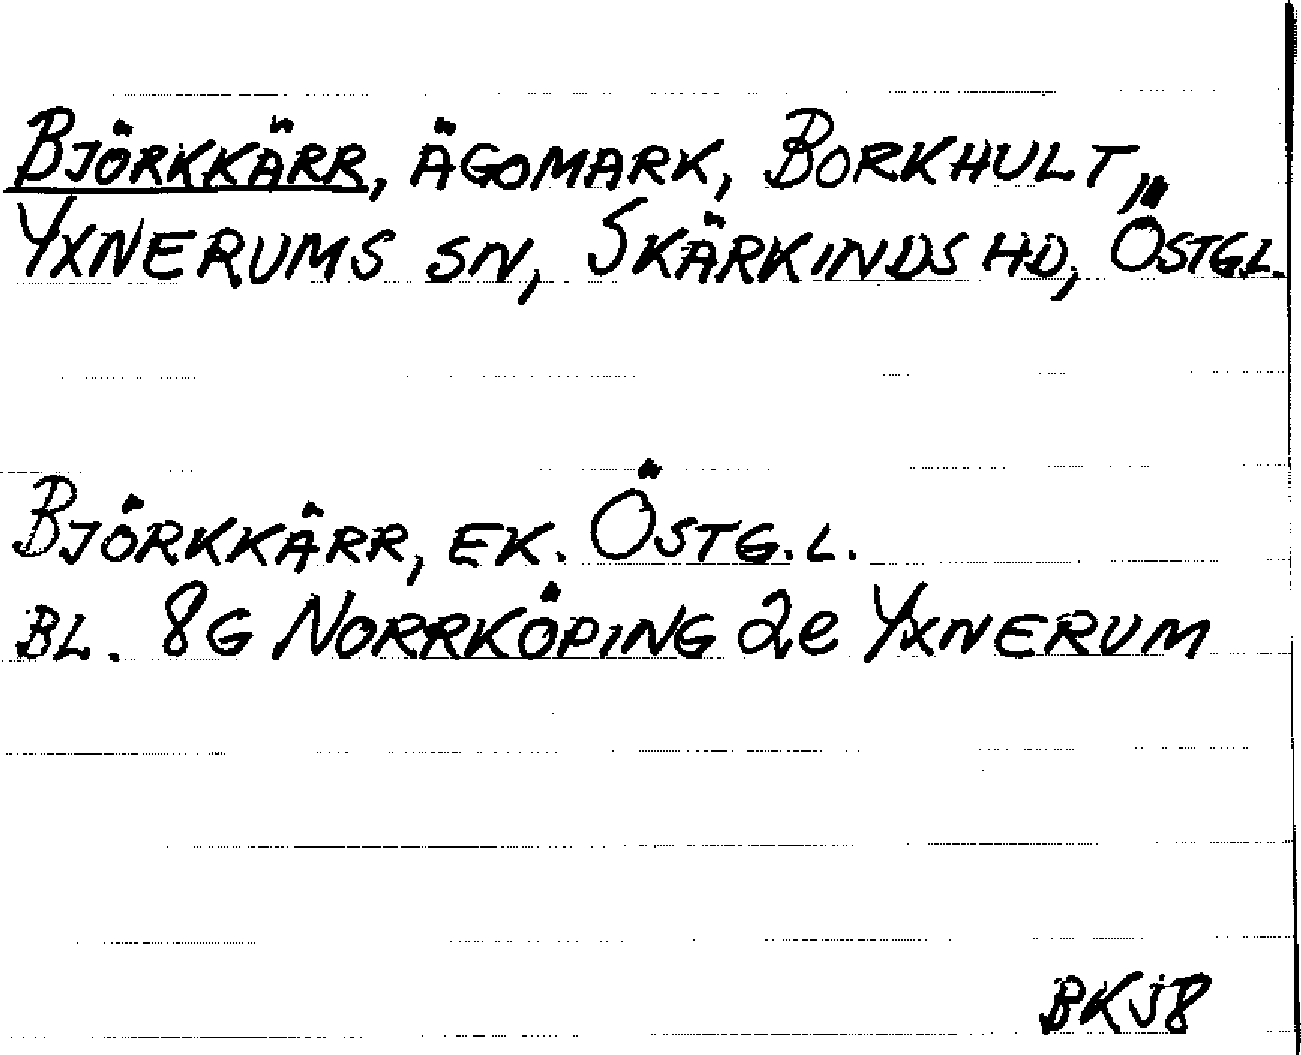 BJÖRKKÄRR, ÄGOMARK, BORKHULT,
YXNERUMS SN, SKÄRKINDS HD, ÖSTGL.
BJÖRKKÄRR, EK. ÖSTG.L.
BL. 8G NORRKÖPING 2e YXNERUM
BKJ8